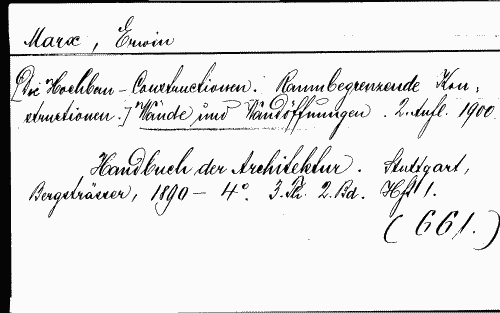 Marx, Erwin
[Die Hochbau-Constructionen. Raumbegrenzende Kon-
structionen.] Wände und Wandöffnungen. 2. Aufl. 1900.
Handbuch der Architektur. Stuttgart,
Bergsträsser, 1890- 4°. 3. Th. 2. Bd. Hft 1.
(661.)